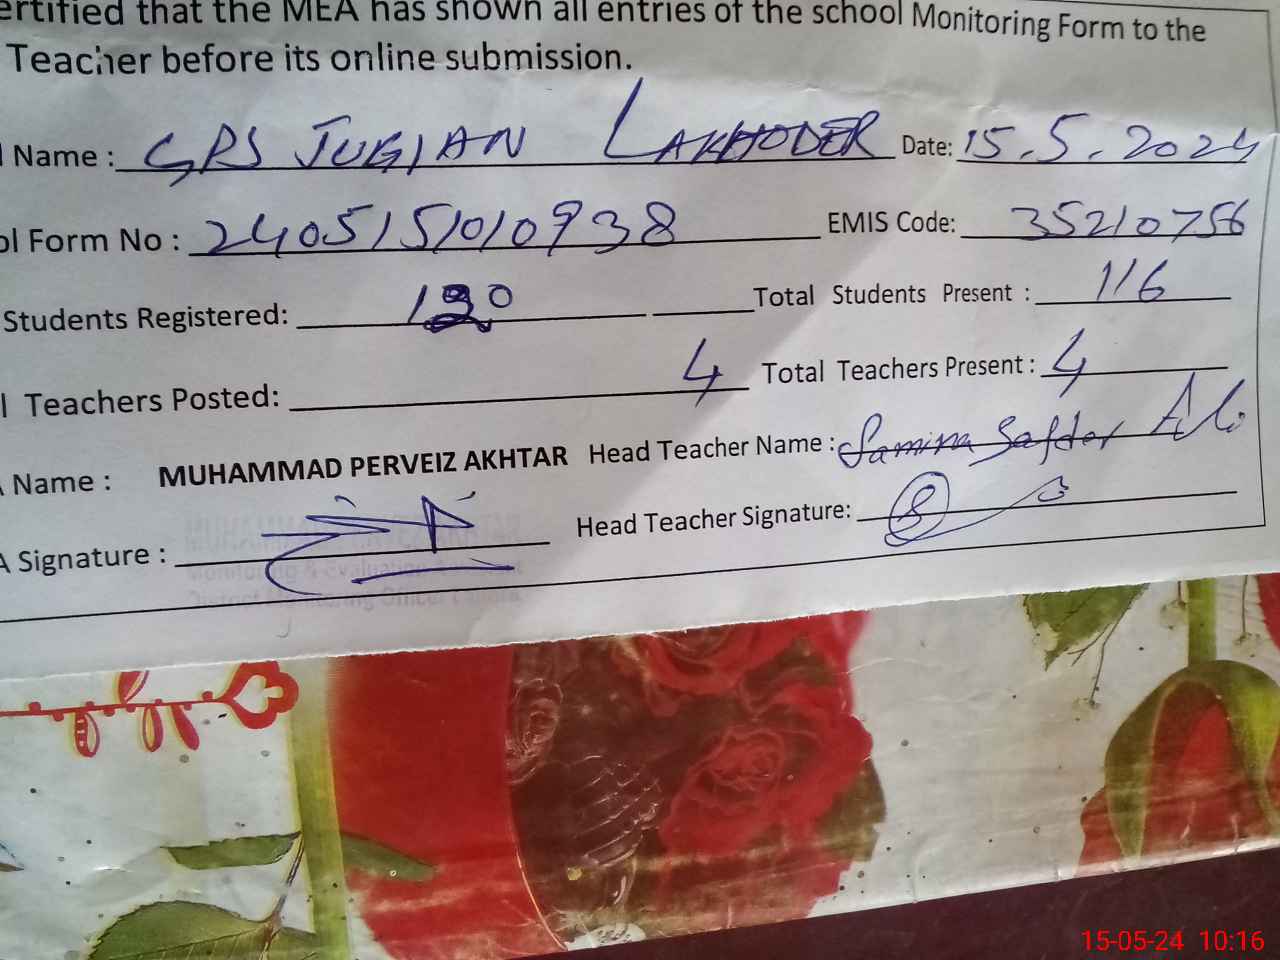 ertified that the MEA has shown all entries of the school Monitoring Form to the
Teacher before its online submission.
l Name : GPS JUGIAN LAKHODER Date: 15.5.2024
ol Form No : 240515010938 EMIS Code: 35210756
Students Registered: Total Students Present : 116
l Teachers Posted: 4 Total Teachers Present : 4
A Name : MUHAMMAD PERVEIZ AKHTAR Head Teacher Name : Samina Safdar Ali
A Signature : Head Teacher Signature:
15-05-24 10:16